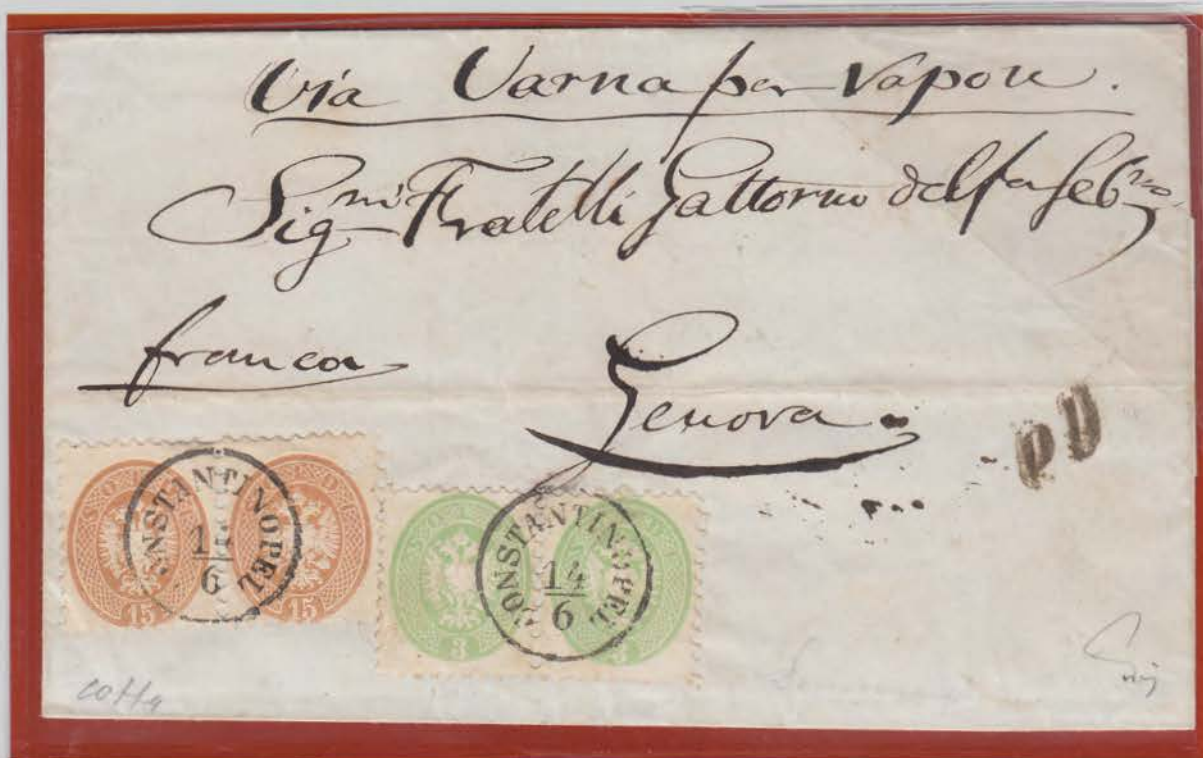 Via Varna per Vapore.
Sig.ri Fratelli Gattorno del fu
franca
Genova.
PD
CONSTANTINOPEL
14
6
CONSTANTINOPEL
14
6
15
15
3
3